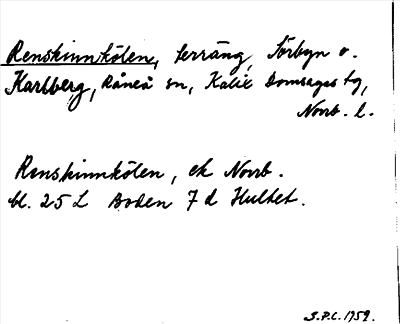 Renskinnkölen, terräng, Sörbyn o.
Karlberg, Råneå sn, Kalix Domsagas tg,
Norrb. l.
Renskinnkölen, ek Norrb.
bl. 25 L Boden 7 d Hultet.
S.P.C. 1959.